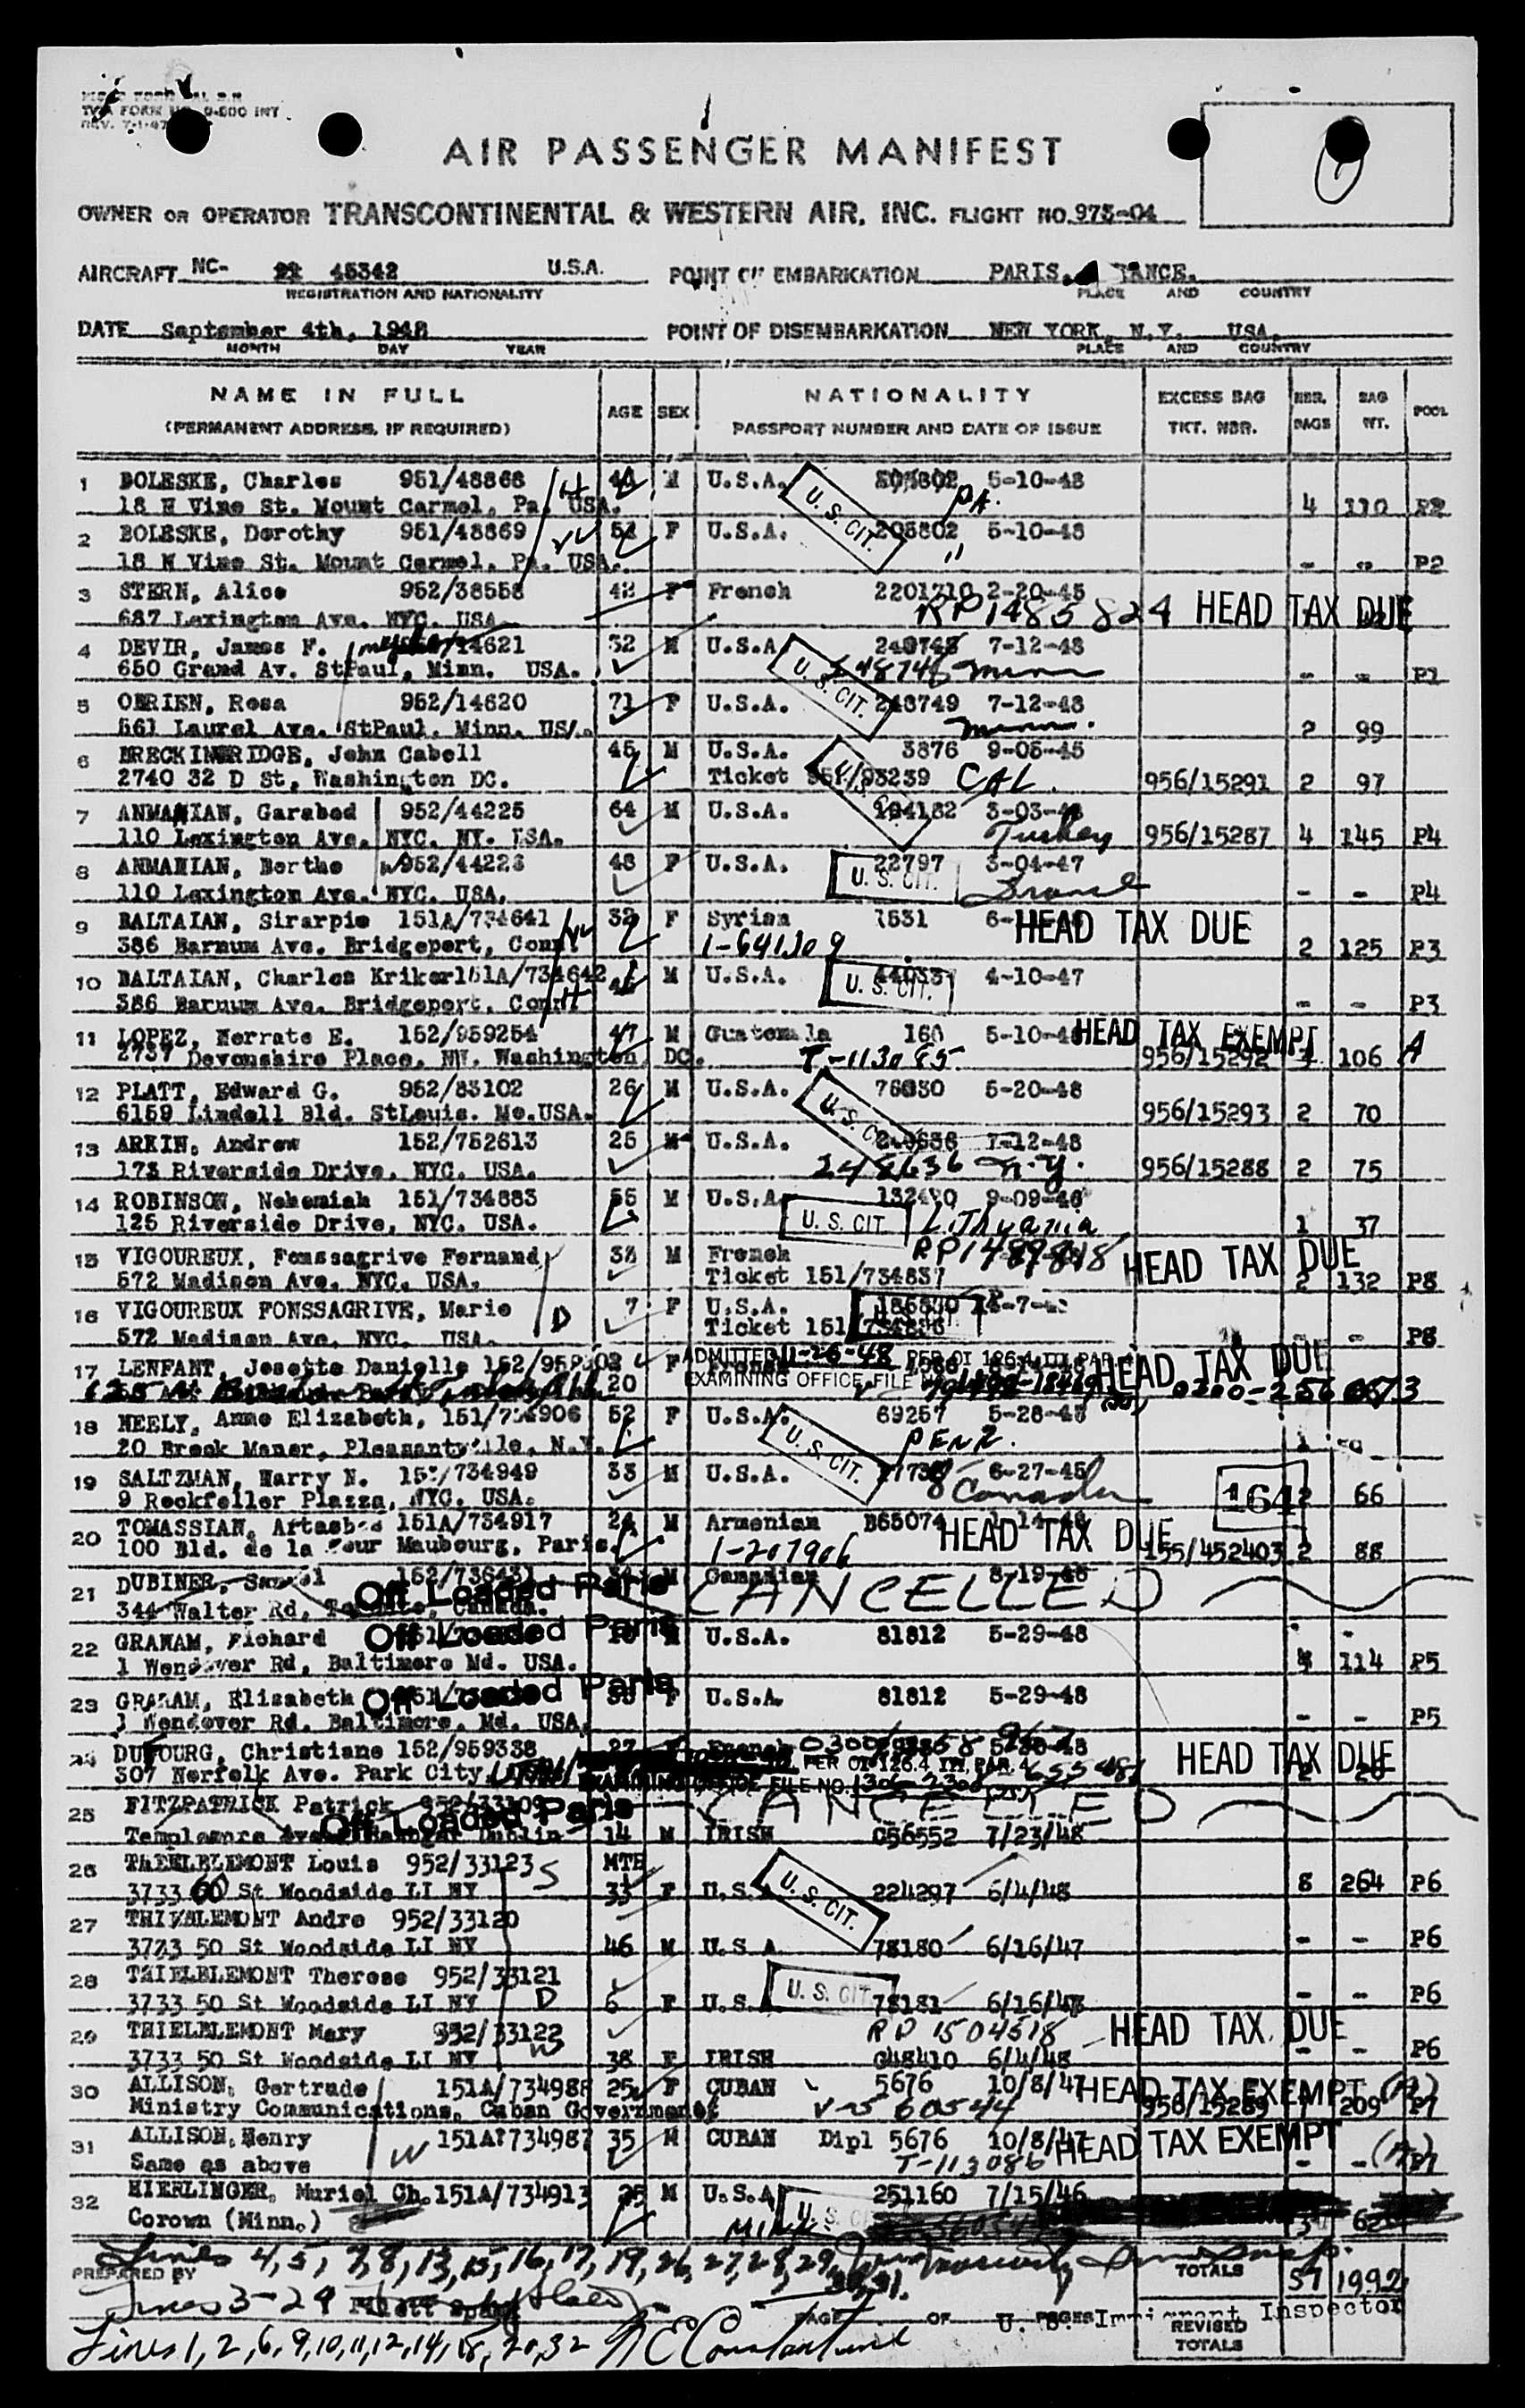 TWA FORM NO. 0-800 INT
REV. 7-1-47
AIR PASSENGER MANIFEST
OWNER OR OPERATOR TRANSCONTINENTAL & WESTERN AIR, INC. FLIGHT NO. 973-04
AIRCRAFT NC- 45342 U.S.A. POINT OF EMBARKATION PARIS,
REGISTRATION AND NATIONALITY PLACE AND COUNTRY
DATE September 4th, 1948 POINT OF DISEMBARKATION NEW YORK, N.Y. USA.
MONTH DAY YEAR PLACE AND COUNTRY
NAME IN FULL AGE SEX NATIONALITY EXCESS BAG NBR. BAG POOL
(PERMANENT ADDRESS, IF REQUIRED) PASSPORT NUMBER AND DATE OF ISSUE TKT. NBR. BAGS WT.
1 BOLESKE, Charles 951/48868 M U.S.A. 5-10-48
18 N Vine St. Mount Carmel, Pa. USA. U. S. CIT. PA. 4 110 P2
2 BOLESKE, Dorothy 951/48869 F U.S.A. 205802 5-10-48
18 N Vine St. Mount Carmel, Pa. USA. " - - P2
3 STERN, Alice 952/38558 42 F French 2201710 2-20-45
687 Lexington Ave. NYC. USA RP1485824 HEAD TAX DUE
4 DEVIR, James F. 14621 32 M U.S.A 7-12-48
650 Grand Av. StPaul, Minn. USA. U. S. CIT. 248748 Minn - - P1
5 OBRIEN, Rosa 952/14620 71 F U.S.A. 248749 7-12-48
561 Laurel Ave. StPaul. Minn. US Minn. 2 99
6 BRECKINBRIDGE, John Cabell 45 M U.S.A. 3876 9-05-45
2740 32 D St, Washington DC. Ticket 951/93239 CAL. 956/15291 2 97
7 ANMANIAN, Garabed 952/44225 64 M U.S.A. 104182 3-03-48
110 Lexington Ave. NYC. NY. USA. Turkey 956/15287 4 145 P4
8 ANMANIAN, Berthe 952/44226 48 F U.S.A. 22797 3-04-47
110 Lexington Ave. NYC. USA. U. S. CIT. France - - P4
9 BALTAIAN, Sirarpie 151A/734641 32 F Syrian 1531 HEAD TAX DUE
386 Barnum Ave. Bridgeport, Conn. 1-641309 2 125 P3
10 BALTAIAN, Charles Kriker 151A/734642 M U.S.A. 4-10-47
386 Barnum Ave. Bridgeport, Conn U. S. CIT. - - P3
11 LOPEZ, Nerrate E. 152/959254 47 M Guatemala 160 5-10-48 HEAD TAX EXEMPT
2737 Devonshire Place, NW. Washington DC. T-113085 956/15292 106 A
12 PLATT, Edward G. 952/83102 26 M U.S.A. 76030 5-20-48
6159 Lindell Bld. StLouis. Mo.USA. U. S. CIT. 956/15293 2 70
13 ARKIN, Andrew 152/752613 25 M U.S.A. 7-12-48
173 Riverside Drive, NYC. USA. 248636 N.Y. 956/15288 2 75
14 ROBINSON, Nehemiah 151/734883 M U.S.A 9-09-46
125 Riverside Drive, NYC. USA. U. S. CIT Lithuania 1 37
15 VIGOUREUX, Fonssagrive Fernand 38 M French HEAD TAX DUE
572 Madison Ave. NYC. USA. Ticket 151/734837 2 132 P8
16 VIGOUREUX FONSSAGRIVE, Marie D 7 F U.S.A.
572 Madison Ave. NYC. USA. Ticket 151 - - P8
17 LENFANT, Josette Danielle F ADMITTED 11-26-48 PER OI 126.4 III PAR HEAD TAX DUE
20 EXAMINING OFFICE FILE
18 NEELY, Anne Elizabeth, 151/734906 52 F U.S.A. 69257 5-28-48
20 Brook Manor, Pleasantville, N.Y. U. S. CIT. PENZ.
19 SALTZMAN, Harry N. 734949 33 M U.S.A. 6-27-45
9 Rockfeller Plazza, NYC. USA. Canada 164 2 66
20 TOMASSIAN, 151A/734917 M Armenian B65074 HEAD TAX DUE
100 Bld. de la Tour Maubourg, Paris. 1-207906 155/452403 2 88
21 DUBINER, 152/736431 M Canadian 8-19-48
344 Walter Rd, Canada. Off Loaded Paris CANCELLED
22 GRAHAM, Richard Off Loaded Paris U.S.A. 81812 5-29-48
1 Wendover Rd, Baltimore Md. USA. 114 P5
23 GRAHAM, Elisabeth Off Loaded Paris F U.S.A. 81812 5-29-48
1 Wendover Rd. Baltimore, Md. USA - - P5
24 DUFOURG, Christiane 152/959338 27 French HEAD TAX DUE
307 Norfolk Ave. Park City, PER OI 126.4 III PAR. 4
EXAMINING OFFICE FILE NO.
25 FITZPATRICK Patrick 952/33109 Off Loaded Paris CANCELLED
Dublin 14 M IRISH 056552 7/23/48
26 Louis 952/33123 MTH
3733 St Woodside LI NY 33 F U.S U. S. CIT. 224297 6/4/48 8 264 P6
27 THIELBLEMONT Andre 952/33120
3733 50 St Woodside LI NY 46 M U.S A 78180 6/16/47 - - P6
28 THIELBLEMONT Therese 952/33121
3733 50 St Woodside LI NY D 6 F U.S U. S. CIT 78181 6/16/48 - - P6
29 THIELBLEMONT Mary 952/33122 RP 1504518 HEAD TAX DUE
3733 50 St Woodside LI NY 38 F IRISH 048410 6/4/48 - - P6
30 ALLISON, Gertrude 151A/734988 25 F CUBAN 5676 10/8/47 HEAD TAX EXEMPT
Ministry Communications, Cuban Government 956/15289 209 P7
31 ALLISON, Henry 151A?734987 35 M CUBAN Dipl 5676 10/8/47 HEAD TAX EXEMPT
Same as above W T-113086 - -
32 HIERLINGER, Muriel Ch. 151A/734913 25 M U.S.A 251160 7/15/46
Corown (Minn.) MINN
Lines 4, 5, 7, 8, 13, 15, 16, 17, 19, 26, 27, 28, 29,
PREPARED BY TOTALS 57 1992
Lines 3-29
PAGE OF PAGES U. S. Immigrant Inspector
REVISED TOTALS
Lines 1, 2, 6, 9, 10, 11, 12, 14, 18, 20, 32 N E Constantine